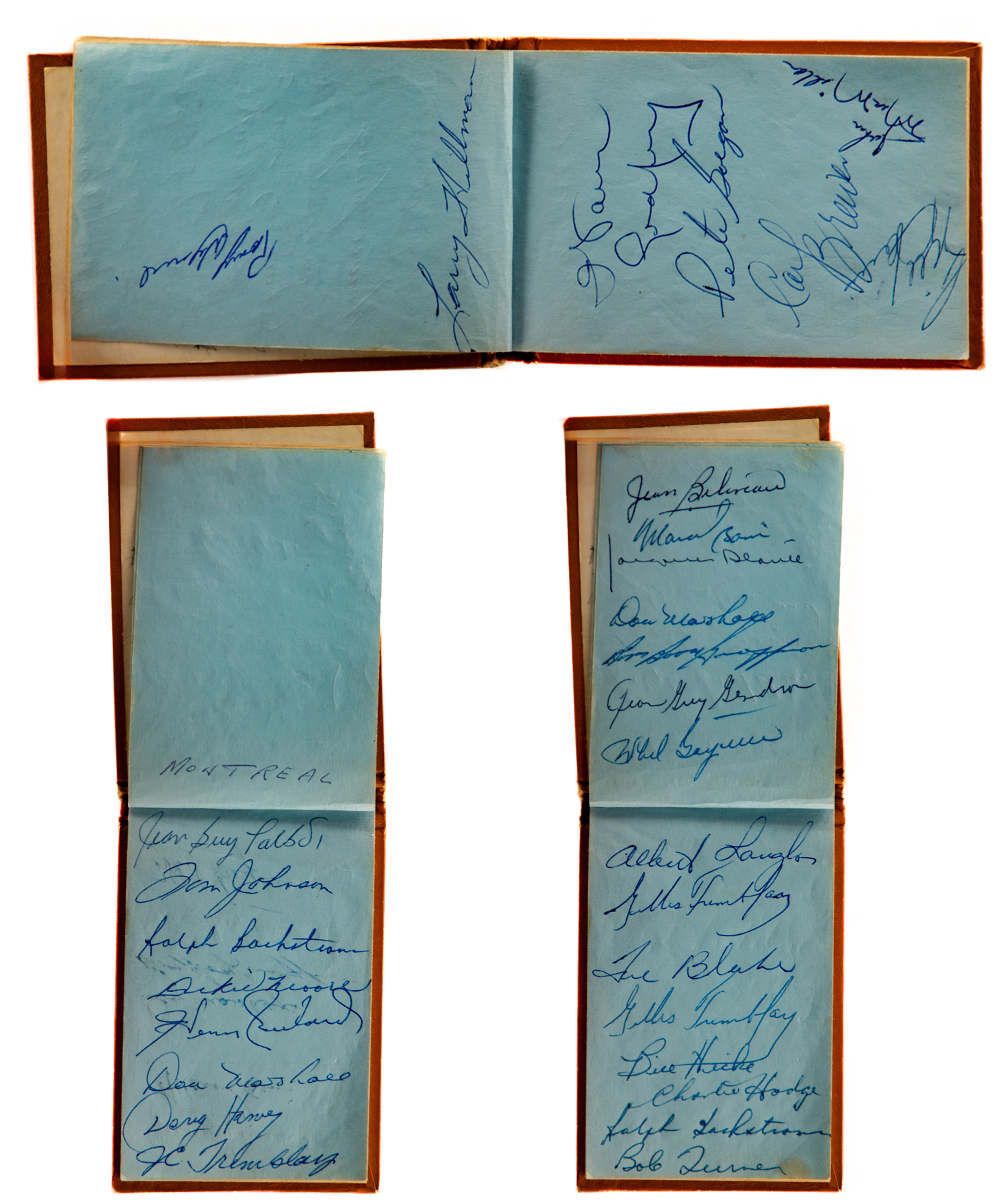 Larry Hillman
Pete Goegan
Carl
Brewer
MONTREAL
Jean Guy Talbot
Tom Johnson
Ralph Backstrom
Dickie Moore
Henri Richard
Don Marshall
Doug Harvey
JC. Tremblay
Jean Beliveau
Marcel Bonin
Jacques Plante
Don Marshall
Jean Guy Gendron
Phil Goyette
Albert Langlois
Gilles Tremblay
Toe Blake
Gilles Tremblay
Bill Hicke
Charlie Hodge
Ralph Backstrom
Bob Turner